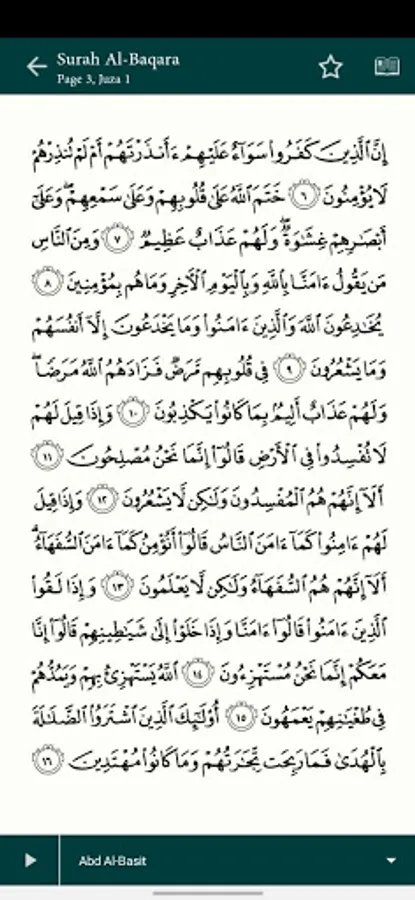 Surah Al-Baqara
Page 3, Juza 1
إِنَّ ٱلَّذِينَ كَفَرُوا۟ سَوَآءٌ عَلَيْهِمْ ءَأَنذَرْتَهُمْ أَمْ لَمْ تُنذِرْهُمْ
لَا يُؤْمِنُونَ ٦ خَتَمَ ٱللَّهُ عَلَىٰ قُلُوبِهِمْ وَعَلَىٰ سَمْعِهِمْ ۖ وَعَلَىٰٓ
أَبْصَٰرِهِمْ غِشَٰوَةٌ ۖ وَلَهُمْ عَذَابٌ عَظِيمٌ ٧ وَمِنَ ٱلنَّاسِ
مَن يَقُولُ ءَامَنَّا بِٱللَّهِ وَبِٱلْيَوْمِ ٱلْءَاخِرِ وَمَا هُم بِمُؤْمِنِينَ ٨
يُخَٰدِعُونَ ٱللَّهَ وَٱلَّذِينَ ءَامَنُوا۟ وَمَا يَخْدَعُونَ إِلَّآ أَنفُسَهُمْ
وَمَا يَشْعُرُونَ ٩ فِى قُلُوبِهِم مَّرَضٌ فَزَادَهُمُ ٱللَّهُ مَرَضًا ۖ
وَلَهُمْ عَذَابٌ أَلِيمٌۢ بِمَا كَانُوا۟ يَكْذِبُونَ ١٠ وَإِذَا قِيلَ لَهُمْ
لَا تُفْسِدُوا۟ فِى ٱلْأَرْضِ قَالُوٓا۟ إِنَّمَا نَحْنُ مُصْلِحُونَ ١١
أَلَآ إِنَّهُمْ هُمُ ٱلْمُفْسِدُونَ وَلَٰكِن لَّا يَشْعُرُونَ ١٢ وَإِذَا قِيلَ
لَهُمْ ءَامِنُوا۟ كَمَآ ءَامَنَ ٱلنَّاسُ قَالُوٓا۟ أَنُؤْمِنُ كَمَآ ءَامَنَ ٱلسُّفَهَآءُ ۗ
أَلَآ إِنَّهُمْ هُمُ ٱلسُّفَهَآءُ وَلَٰكِن لَّا يَعْلَمُونَ ١٣ وَإِذَا لَقُوا۟
ٱلَّذِينَ ءَامَنُوا۟ قَالُوٓا۟ ءَامَنَّا وَإِذَا خَلَوْا۟ إِلَىٰ شَيَٰطِينِهِمْ قَالُوٓا۟ إِنَّا
مَعَكُمْ إِنَّمَا نَحْنُ مُسْتَهْزِءُونَ ١٤ ٱللَّهُ يَسْتَهْزِئُ بِهِمْ وَيَمُدُّهُمْ
فِى طُغْيَٰنِهِمْ يَعْمَهُونَ ١٥ أُو۟لَٰٓئِكَ ٱلَّذِينَ ٱشْتَرَوُا۟ ٱلضَّلَٰلَةَ
بِٱلْهُدَىٰ فَمَا رَبِحَت تِّجَٰرَتُهُمْ وَمَا كَانُوا۟ مُهْتَدِينَ ١٦
Abd Al-Basit